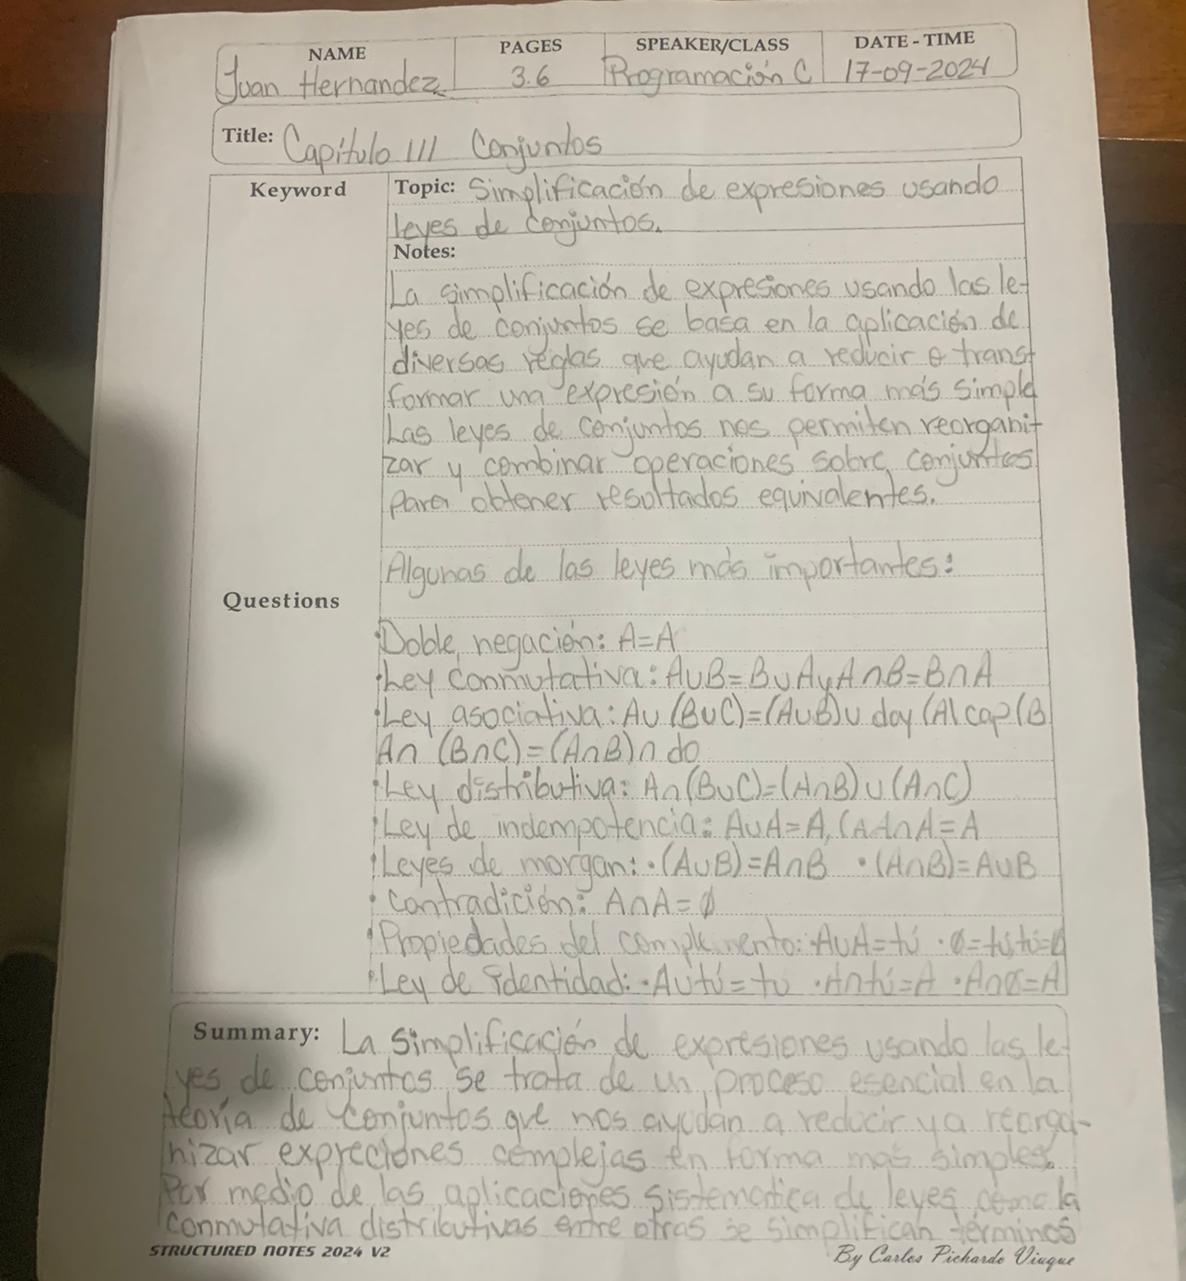 NAME PAGES SPEAKER/CLASS DATE-TIME
Juan Hernandez 3.6 Programación C 17-09-2024
Title: Capítulo III Conjuntos
Keyword
Topic: Simplificación de expresiones usando
leyes de conjuntos.
Notes:
La simplificación de expresiones usando las le-
yes de conjuntos se basa en la aplicación de
diversas reglas que ayudan a reducir o trans-
formar una expresión a su forma más simple
Las leyes de conjuntos nos permiten reorgani-
zar y combinar operaciones sobre conjuntos
para obtener resultados equivalentes.
Algunas de las leyes más importantes:
Questions
·Doble negación: A=A
·Ley conmutativa: A∪B=B∪A y A∩B=B∩A
·Ley asociativa: A∪(B∪C)=(A∪B)∪ day (A\cap(B
A∩(B∩C)=(A∩B)∩ do
·Ley distributiva: A∩(B∪C)=(A∩B)∪(A∩C)
·Ley de indempotencia: A∪A=A, (A A∩A=A
·Leyes de morgan: ·(A∪B)=A∩B ·(A∩B)=A∪B
·Contradición: A∩A=∅
·Propiedades del complemento: ·A∪A=tú ·∅=tú,tú=∅
·Ley de identidad: ·A∪tú=tu ·A∩tú=A ·A∩∅=A
Summary: La simplificación de expresiones usando las le-
yes de conjuntos se trata de un proceso esencial en la
teoría de conjuntos que nos ayudan a reducir y a reorga-
nizar expreciones complejas en forma mas simples.
Por medio de las aplicaciones sistematica de leyes como la
conmutativa distributivas entre otras se simplifican términos
STRUCTURED NOTES 2024 V2
By Carlos Pichardo Viuque